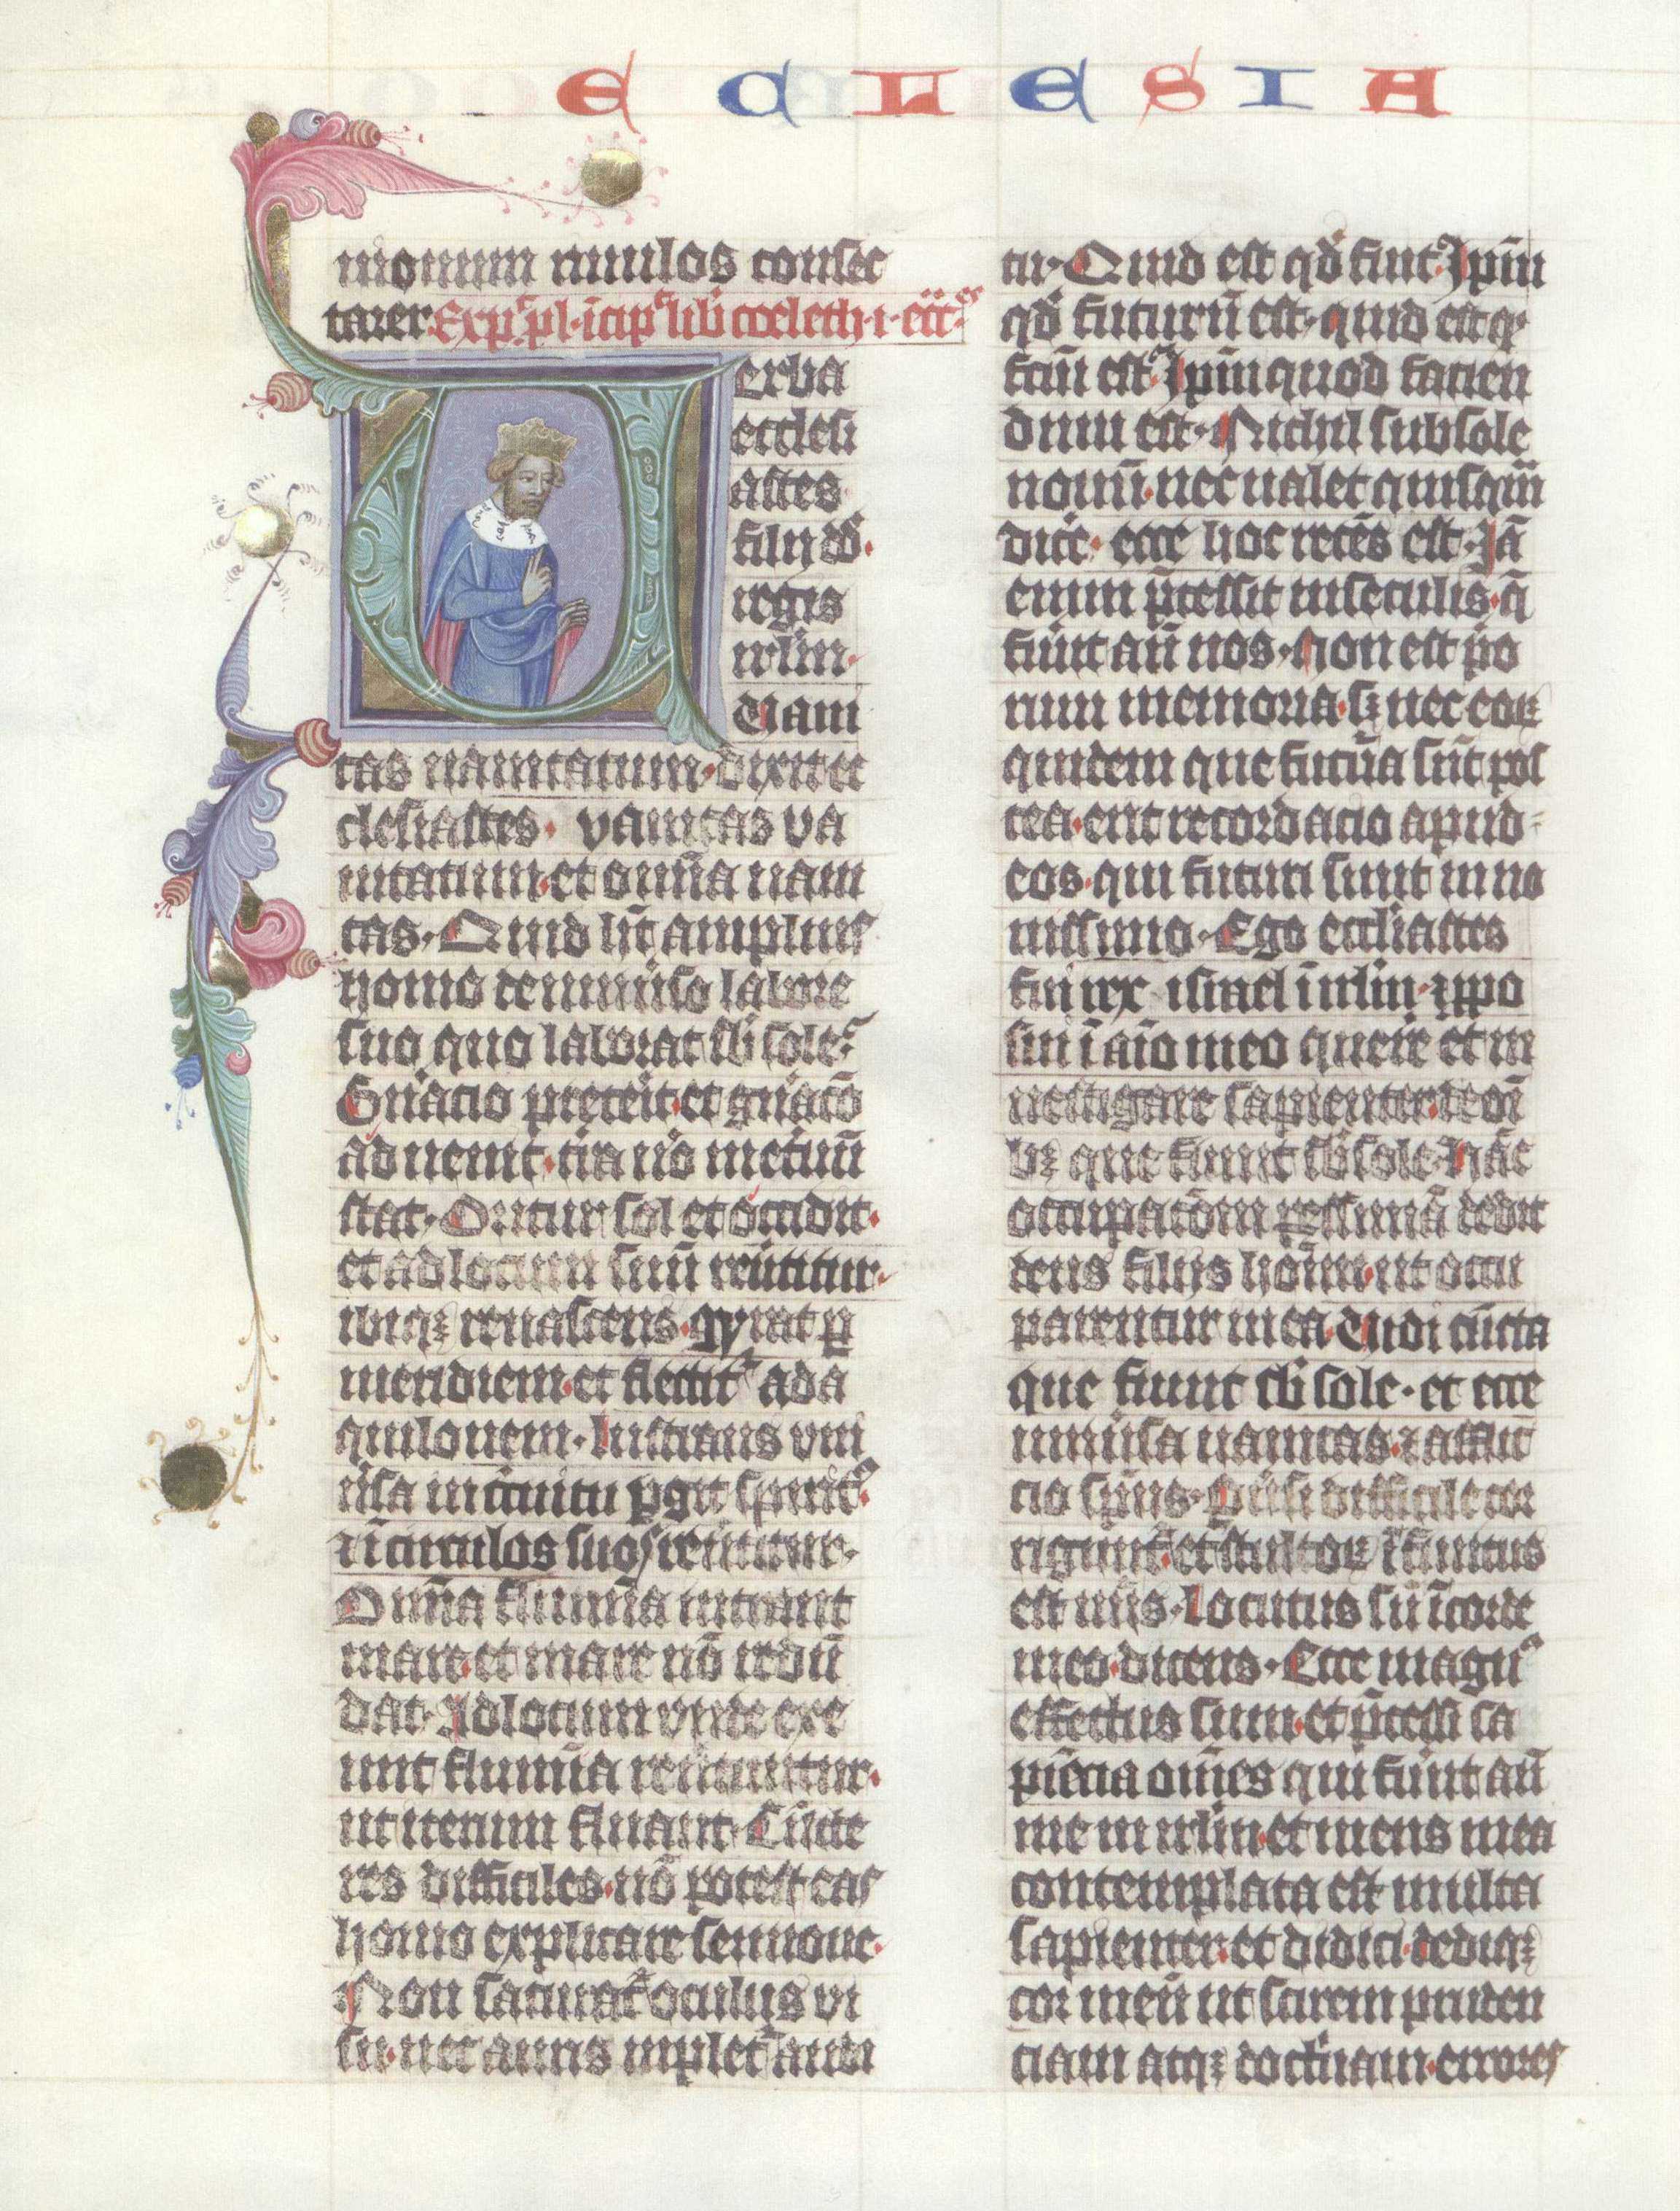 ECLESIA
monum nullos consec
tarer Explꝰ pl· incipꝰ lib coeleth· i· ecc̄es
Verba
ecclesi
astes
filii dd̄·
regis
irlm̄·
Uani
tas uanitatum· dixit ec
clesiastes· vanitas va
nitatum· et omīa uani
tas· Quid hīt amplius
homo de uniuīso labore
suo quo laborat sb̄ sole·
Gn̄acio preteit· et gn̄acō
aduenit· tīa uo in etnū
stat· Oritur sol et occidit·
et ad locum suū reūtitur·
ibiqꝫ renascens· gyrat ꝑ
meridiem· et flectitꝰ ad a
quilonem· lustrans vni
ūsa in circuitu ꝑgit spiritꝰ·
⁊ ī circulos suos reūtitur·
Omīa flumīa intrant
mare· et mare nō redū
dat· Ad locum vnde exe
unt flumīa reūtuntur·
ut iterum fluant· Cūcte
res difficiles· nō potest eas
homo explicare sermone·
Non saturatꝰ oculus vi
su· nec auris impletꝰ audi
tu· Quid est qd̄ fuit· Ipm̄
qd̄ futurū est· quid est qꝰ
fcm̄ est· Ipm̄ quod facien
dum est· Nichil sub sole
nouū· nec ualet quisqm̄
dice· ecce hoc recēs est· Iā
enim p̄cessit in seculis· q̄
fūnt an̄ nos· Non est p̄o
rum memoria· sꝫ nec eoꝝ
quidem que futūa sūt pos
tea· erit recordacio apud
eos· qui futuri sunt in no
uissimo· Ego eccl̄iastes
fui rex israel ī irlm̄· ⁊ ppo
sui ī aīo meo quere et in
uestigare sapienter· de oī
bꝫ que fiunt sb̄ sole· Hāc
occupacōm pessimā dedit
deus filiis hoīm· ut occu
parentur in ea· Uidi cūcta
que fiunt sb̄ sole· et ecce
uniūsa uanitas· ⁊ afflic
cio spūs· Puersi difficile cor
rigunt̄· et stultoꝝ īfinitus
est nūs· Locutus sū ī corde
meo· dicens· Ecce magnꝰ
effectus sum· et p̄cessi sa
piēcia om̄es qui fūnt an̄
me in irlm̄· et mens mea
contemplata est multa
sapienter· et didici· dediqꝫ
cor meū ut scirem pruden
ciam atqꝫ doctīnam· errores